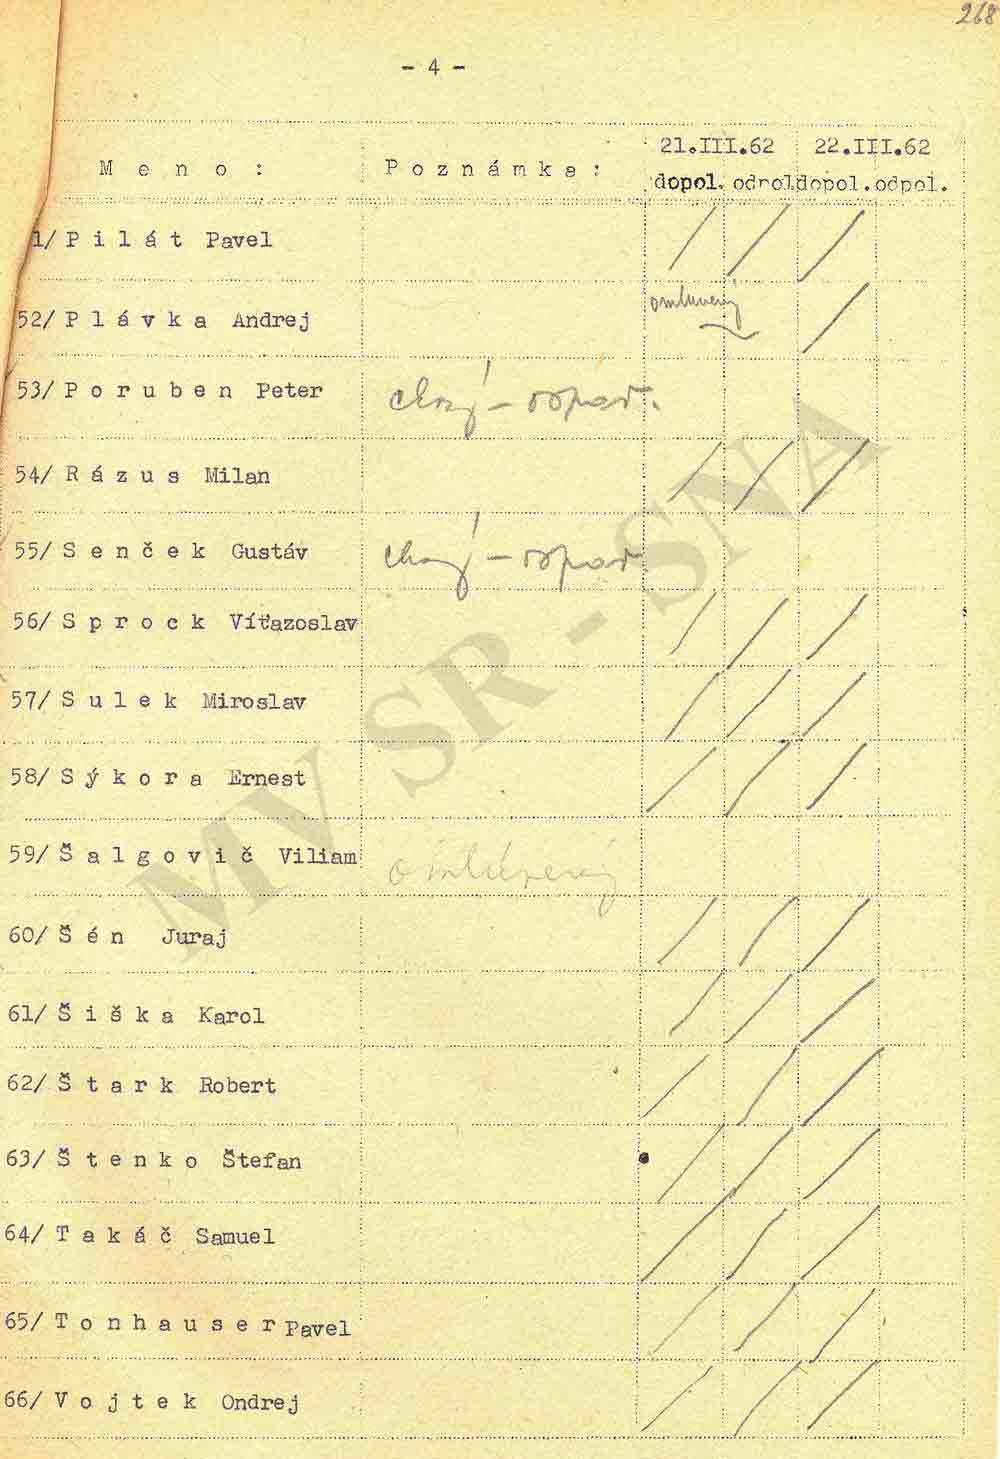 268
- 4 -
21.III.62 22.III.62
M e n o : P o z n á m k a :
dopol. odpol. dopol. odpol.
1/ P i l á t Pavel
omluvený
52/ P l á v k a Andrej
53/ P o r u b e n Peter chorý –
54/ R á z u s Milan
55/ S e n č e k Gustáv chorý –
56/ S p r o c k Víťazoslav
57/ S u l e k Miroslav
58/ S ý k o r a Ernest
59/ Š a l g o v i č Viliam omluvený
60/ Š é n Juraj
61/ Š i š k a Karol
62/ Š t a r k Robert
63/ Š t e n k o Štefan
64/ T a k á č Samuel
65/ T o n h a u s e r Pavel
66/ V o j t e k Ondrej
MV SR - SNA